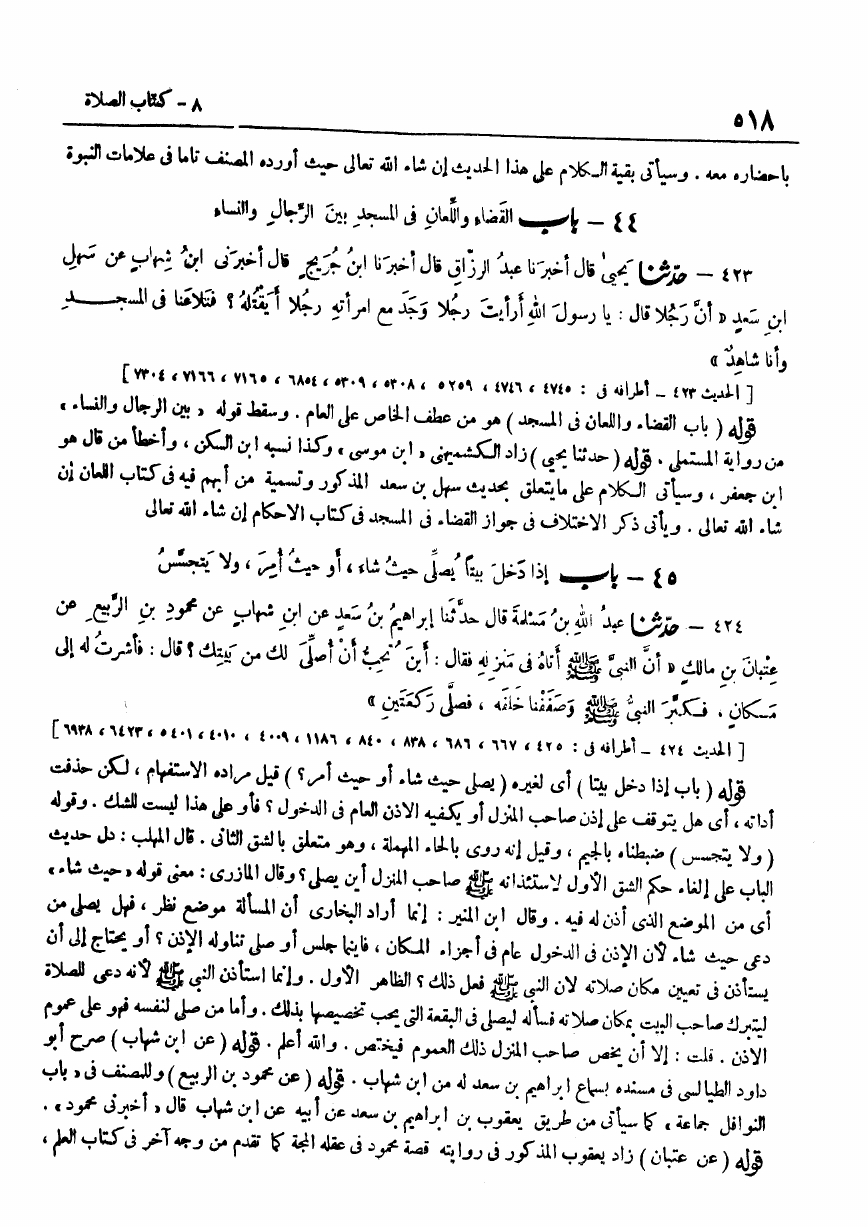 ٨ - كتاب الصلاة
٥١٨
باحضاره معه . وسيأتى بقية الكلام على هذا الحديث إن شاء الله تعالى حيث أورده المصنف تاما فى علامات النبوة
٤٤ - باب القضاءِ واللِّعانِ فى المسجدِ بينَ الرِّجالِ والنساءِ
٤٢٣ - حدّثنا يحيىٰ قال أخبرَنا عبدُ الرزّاقِ قال أخبرَنا ابنُ جُرَيجٍ قال أخبرَنى ابنُ شِهابٍ عن سَهلِ
ابنِ سَعدٍ « أنَّ رَجُلا قال : يا رسولَ اللهِ أرأيتَ رجُلا وَجَدَ مع امرأتهِ رجُلا أيَقْتُلهُ ؟ فتَلاعَنا فى المسجـدِ
وأنا شاهِدٌ »
[ الحديث ٤٢٣ - أطرافه فى : ٤٧٤٥ ، ٤٧٤٦ ، ٥٢٥٩ ، ٥٣٠٨ ، ٥٣٠٩ ، ٦٨٥٤ ، ٧١٦٥ ، ٧١٦٦ ، ٧٣٠٤ ]
قوله ( باب القضاء واللعان فى المسجد ) هو من عطف الخاص على العام . وسقط قوله « بين الرجال والنساء »
من رواية المستملى . قوله ( حدثنا يحيى ) زاد الكشميهنى « ابن موسى » وكذا نسبه ابن السكن ، وأخطأ من قال هو
ابن جعفر ، وسيأتى الكلام على ما يتعلق بحديث سهل بن سعد المذكور وتسمية من أبهم فيه فى كتاب اللعان إن
شاء الله تعالى . ويأتى ذكر الاختلاف فى جواز القضاء فى المسجد فى كتاب الاحكام إن شاء الله تعالى
٤٥ - باب إذا دَخلَ بيتاً يُصلِّى حيثُ شاء ، أو حيثُ أُمِرَ ، ولا يَتجسَّسُ
٤٢٤ - حدّثنا عبدُ اللهِ بنُ مَسْلمةَ قال حدَّثَنا إبراهيمُ بنُ سَعدٍ عن ابنِ شهابٍ عن محمودِ بنِ الرَّبيعِ عن
عِتْبانَ بنِ مالكٍ « أنَّ النبىَّ ﷺ أتاهُ فى مَنزِلهِ فقال : أينَ تُحِبُّ أنْ أصلِّىَ لك من بَيتِك ؟ قال : فأشرتُ له إلى
مَـكانٍ . فـكبَّرَ النبىُّ ﷺ وَصَفَفْنا خَلفَه ، فصلَّى رَكعَتَينِ »
[ الحديث ٤٢٤ - أطرافه فى : ٤٢٥ ، ٦٦٧ ، ٦٨٦ ، ٨٣٨ ، ٨٤٠ ، ١١٨٦ ، ٤٠٠٩ ، ٤٠١٠ ، ٥٤٠١ ، ٦٤٢٣ ، ٦٩٣٨ ]
قوله ( باب إذا دخل بيتا ) أى لغيره ( يصلى حيث شاء أو حيث أمر ؟ ) قيل مراده الاستفهام ، لكن حذفت
أداته ، أى هل يتوقف على إذن صاحب المنزل أو يكفيه الاذن العام فى الدخول ؟ فأو على هذا ليست للشك . وقوله
( ولا يتجسس ) ضبطناه بالجيم ، وقيل إنه روى بالحاء المهملة ، وهو متعلق بالشق الثانى . قال المهلب : دل حديث
الباب على إلغاء حكم الشق الأول لاستئذانه ﷺ صاحب المنزل أين يصلى ؟ وقال المازرى : معنى قوله « حيث شاء »
أى من الموضع الذى أذن له فيه . وقال ابن المنير : إنما أراد البخارى أن المسألة موضع نظر ، فهل يصلى من
دعى حيث شاء لأن الإذن فى الدخول عام فى أجزاء المكان ، فاينما جلس أو صلى تناوله الإذن ؟ أو يحتاج إلى أن
يستأذن فى تعيين مكان صلاته لان النبى ﷺ فعل ذلك ؟ الظاهر الأول . وإنما استأذن النبى ﷺ لأنه دعى للصلاة
ليتبرك صاحب البيت بمكان صلاته فسأله ليصلى فى البقعة التى يحب تخصيصها بذلك . وأما من صلى لنفسه فهو على عموم
الاذن . قلت : إلا أن يخص صاحب المنزل ذلك العموم فيختص . والله أعلم . قوله ( عن ابن شهاب ) صرح أبو
داود الطيالسى فى مسنده بسماع ابراهيم بن سعد له من ابن شهاب . قوله ( عن محمود بن الربيع ) وللمصنف فى « باب
النوافل جماعة » كما سيأتى من طريق يعقوب بن ابراهيم بن سعد عن أبيه عن ابن شهاب قال « أخبرنى محمود » .
قوله ( عن عتبان ) زاد يعقوب المذكور فى روايته قصة محمود فى عقله المجة كما تقدم من وجه آخر فى كتاب العلم ،